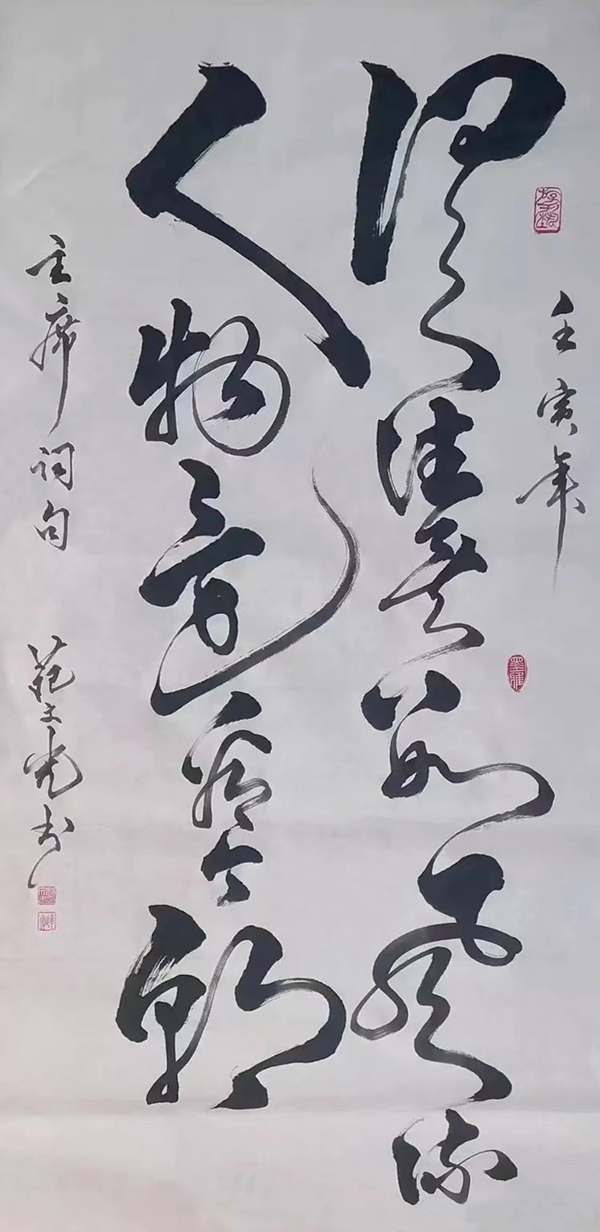 壬寅年
俱往矣数风流
人物还看今朝
主席词句 范光书